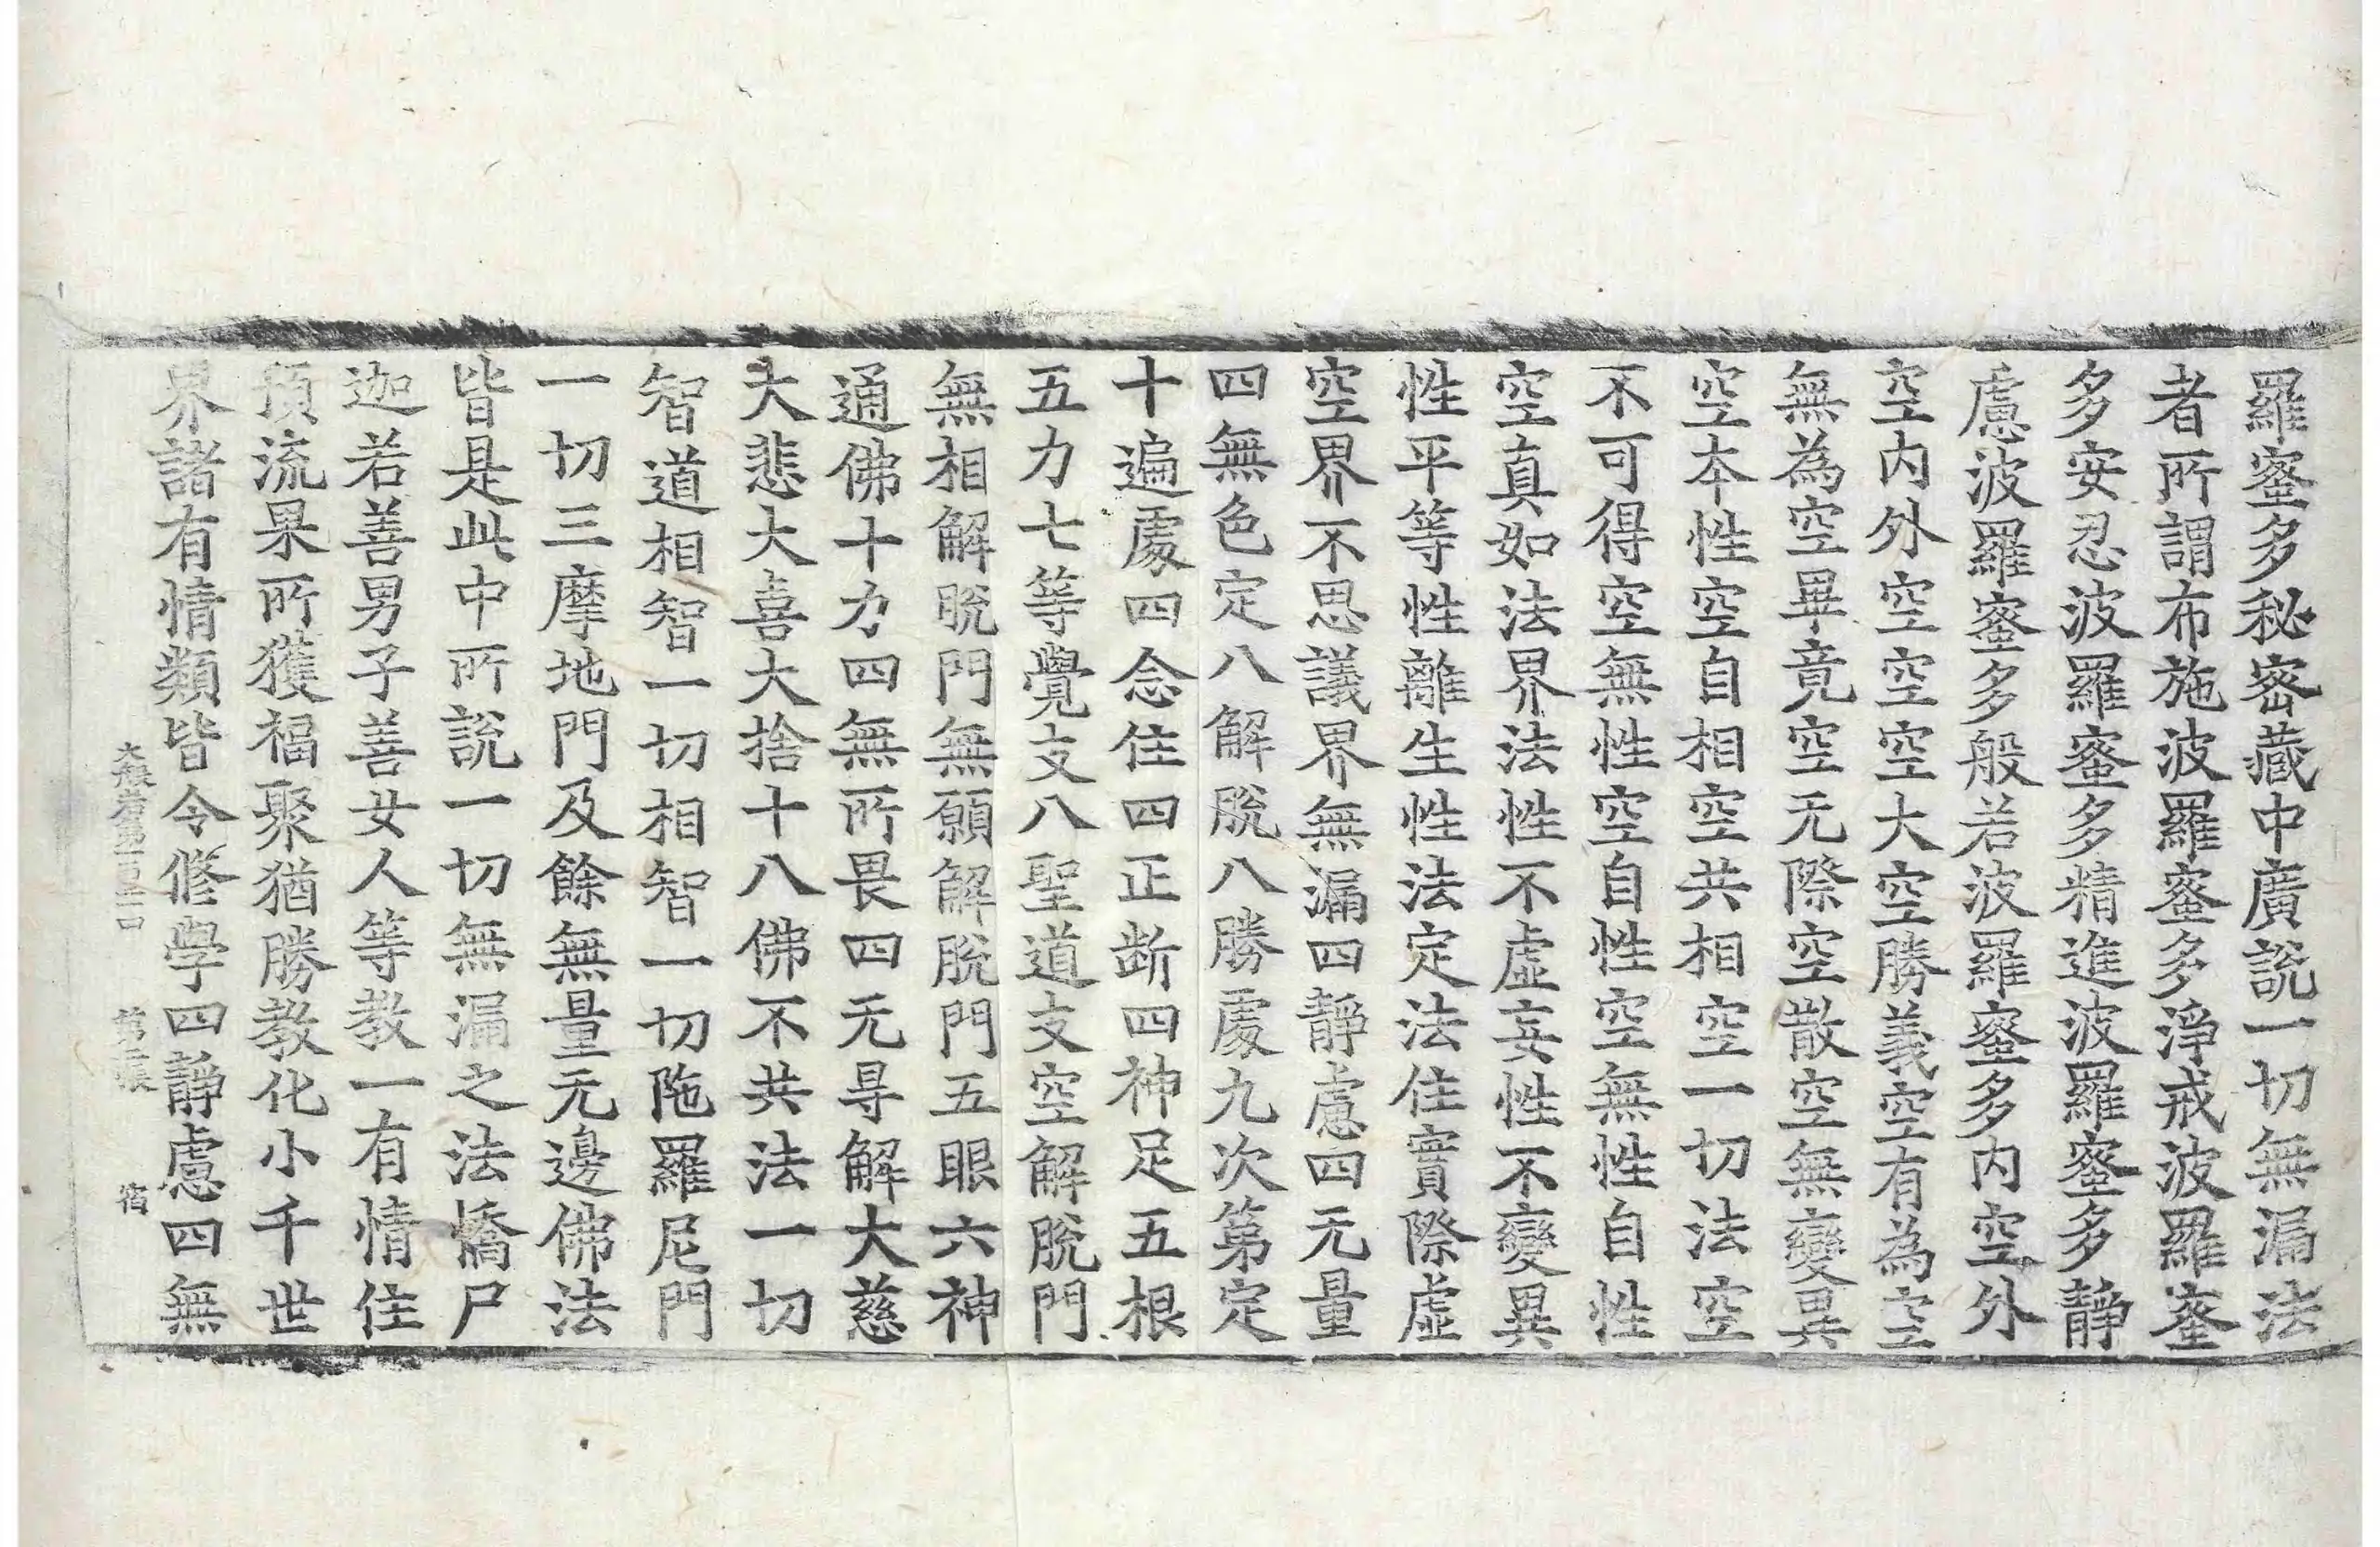 羅蜜多秘密藏中廣說一切無漏法
者所謂布施波羅蜜多淨戒波羅蜜
多安忍波羅蜜多精進波羅蜜多靜
慮波羅蜜多般若波羅蜜多內空外
空內外空空空大空勝義空有為空
無為空畢竟空无際空散空無變異
空本性空自相空共相空一切法空
不可得空無性空自性空無性自性
空真如法界法性不虛妄性不變異
性平等性離生性法定法住實際虛
空界不思議界無漏四靜慮四无量
四無色定八解脫八勝處九次第定
十遍處四念住四正斷四神足五根
五力七等覺支八聖道支空解脫門
無相解脫門無願解脫門五眼六神
通佛十力四無所畏四无㝵解大慈
大悲大喜大捨十八佛不共法一切
智道相智一切相智一切陁羅尼門
一切三摩地門及餘無量无邊佛法
皆是此中所說一切無漏之法憍尸
迦若善男子善女人等教一有情住
預流果所獲福聚猶勝教化小千世
界諸有情類皆令修學四靜慮四無
大般若第一百三十四 第二張 宿